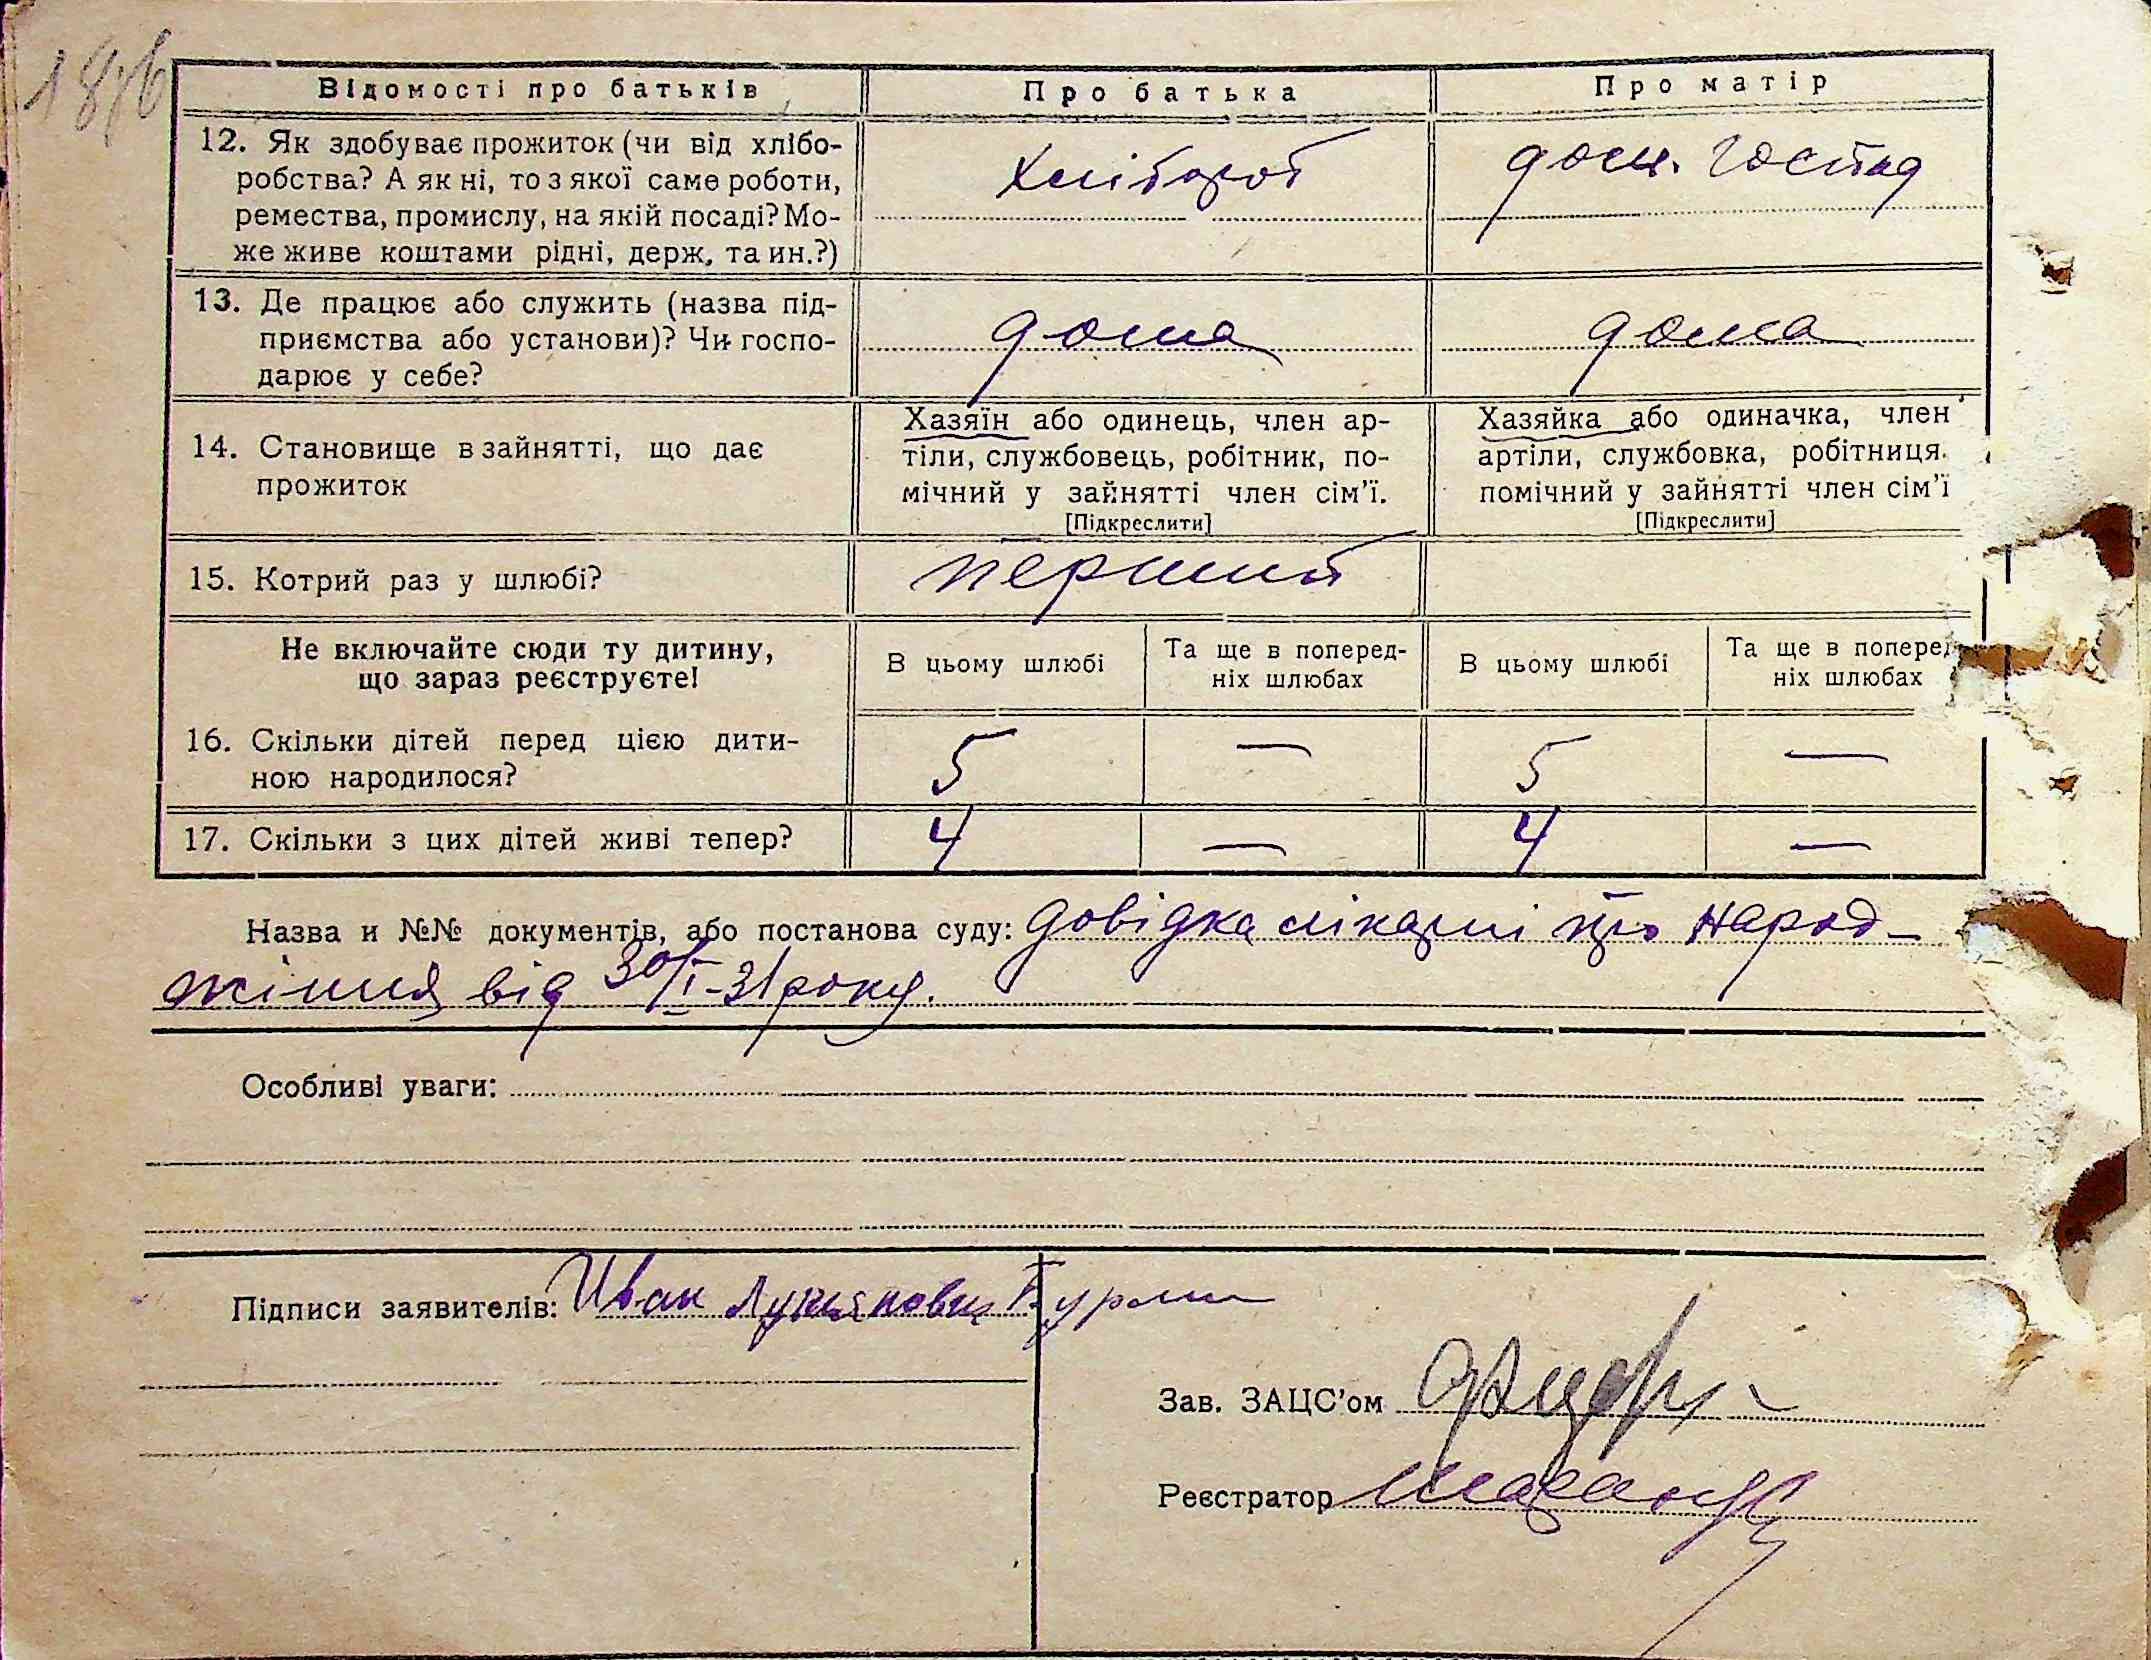 Відомості про батьків
Про батька
Про матір
12. Як здобуває прожиток (чи від хлібо-
робства? А як ні, то з якої саме роботи,
ремества, промислу, на якій посаді? Мо-
же живе коштами рідні, держ, та ин.?)
Хлібороб
дом. господ
13. Де працює або служить (назва під-
приємства або установи)? Чи госпо-
дарює у себе?
дома
дома
14. Становище в зайнятті, що дає
прожиток
Хазяїн або одинець, член ар-
тіли, службовець, робітник, по-
мічний у зайнятті член сім'ї.
[Підкреслити]
Хазяйка або одиначка, член
артіли, службовка, робітниця.
помічний у зайнятті член сім'ї
[Підкреслити]
15. Котрий раз у шлюбі?
первий
Не включайте сюди ту дитину,
що зараз реєструєте!
В цьому шлюбі
Та ще в поперед-
ніх шлюбах
В цьому шлюбі
Та ще в поперед
ніх шлюбах
16. Скільки дітей перед цією дити-
ною народилося?
5 — 5 —
17. Скільки з цих дітей живі тепер?
4 — 4 —
Назва и №№ документів, або постанова суду: Довідка лікарні про народ-
жіння від 30/I-31 року.
Особливі уваги:
Підписи заявителів: Иван Лукянович
Зав. ЗАЦС'ом
Реєстратор